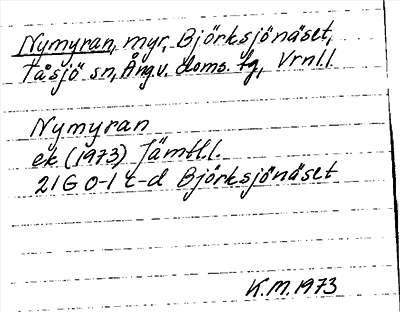 Nymyran, myr, Björksjönäset,
Tåsjö sn, Ång.v. doms. tg, Vrnl.l.
Nymyran
ek. (1973) Jämtl.l.
21G 0-1 c-d Björksjönäset
K.M. 1973